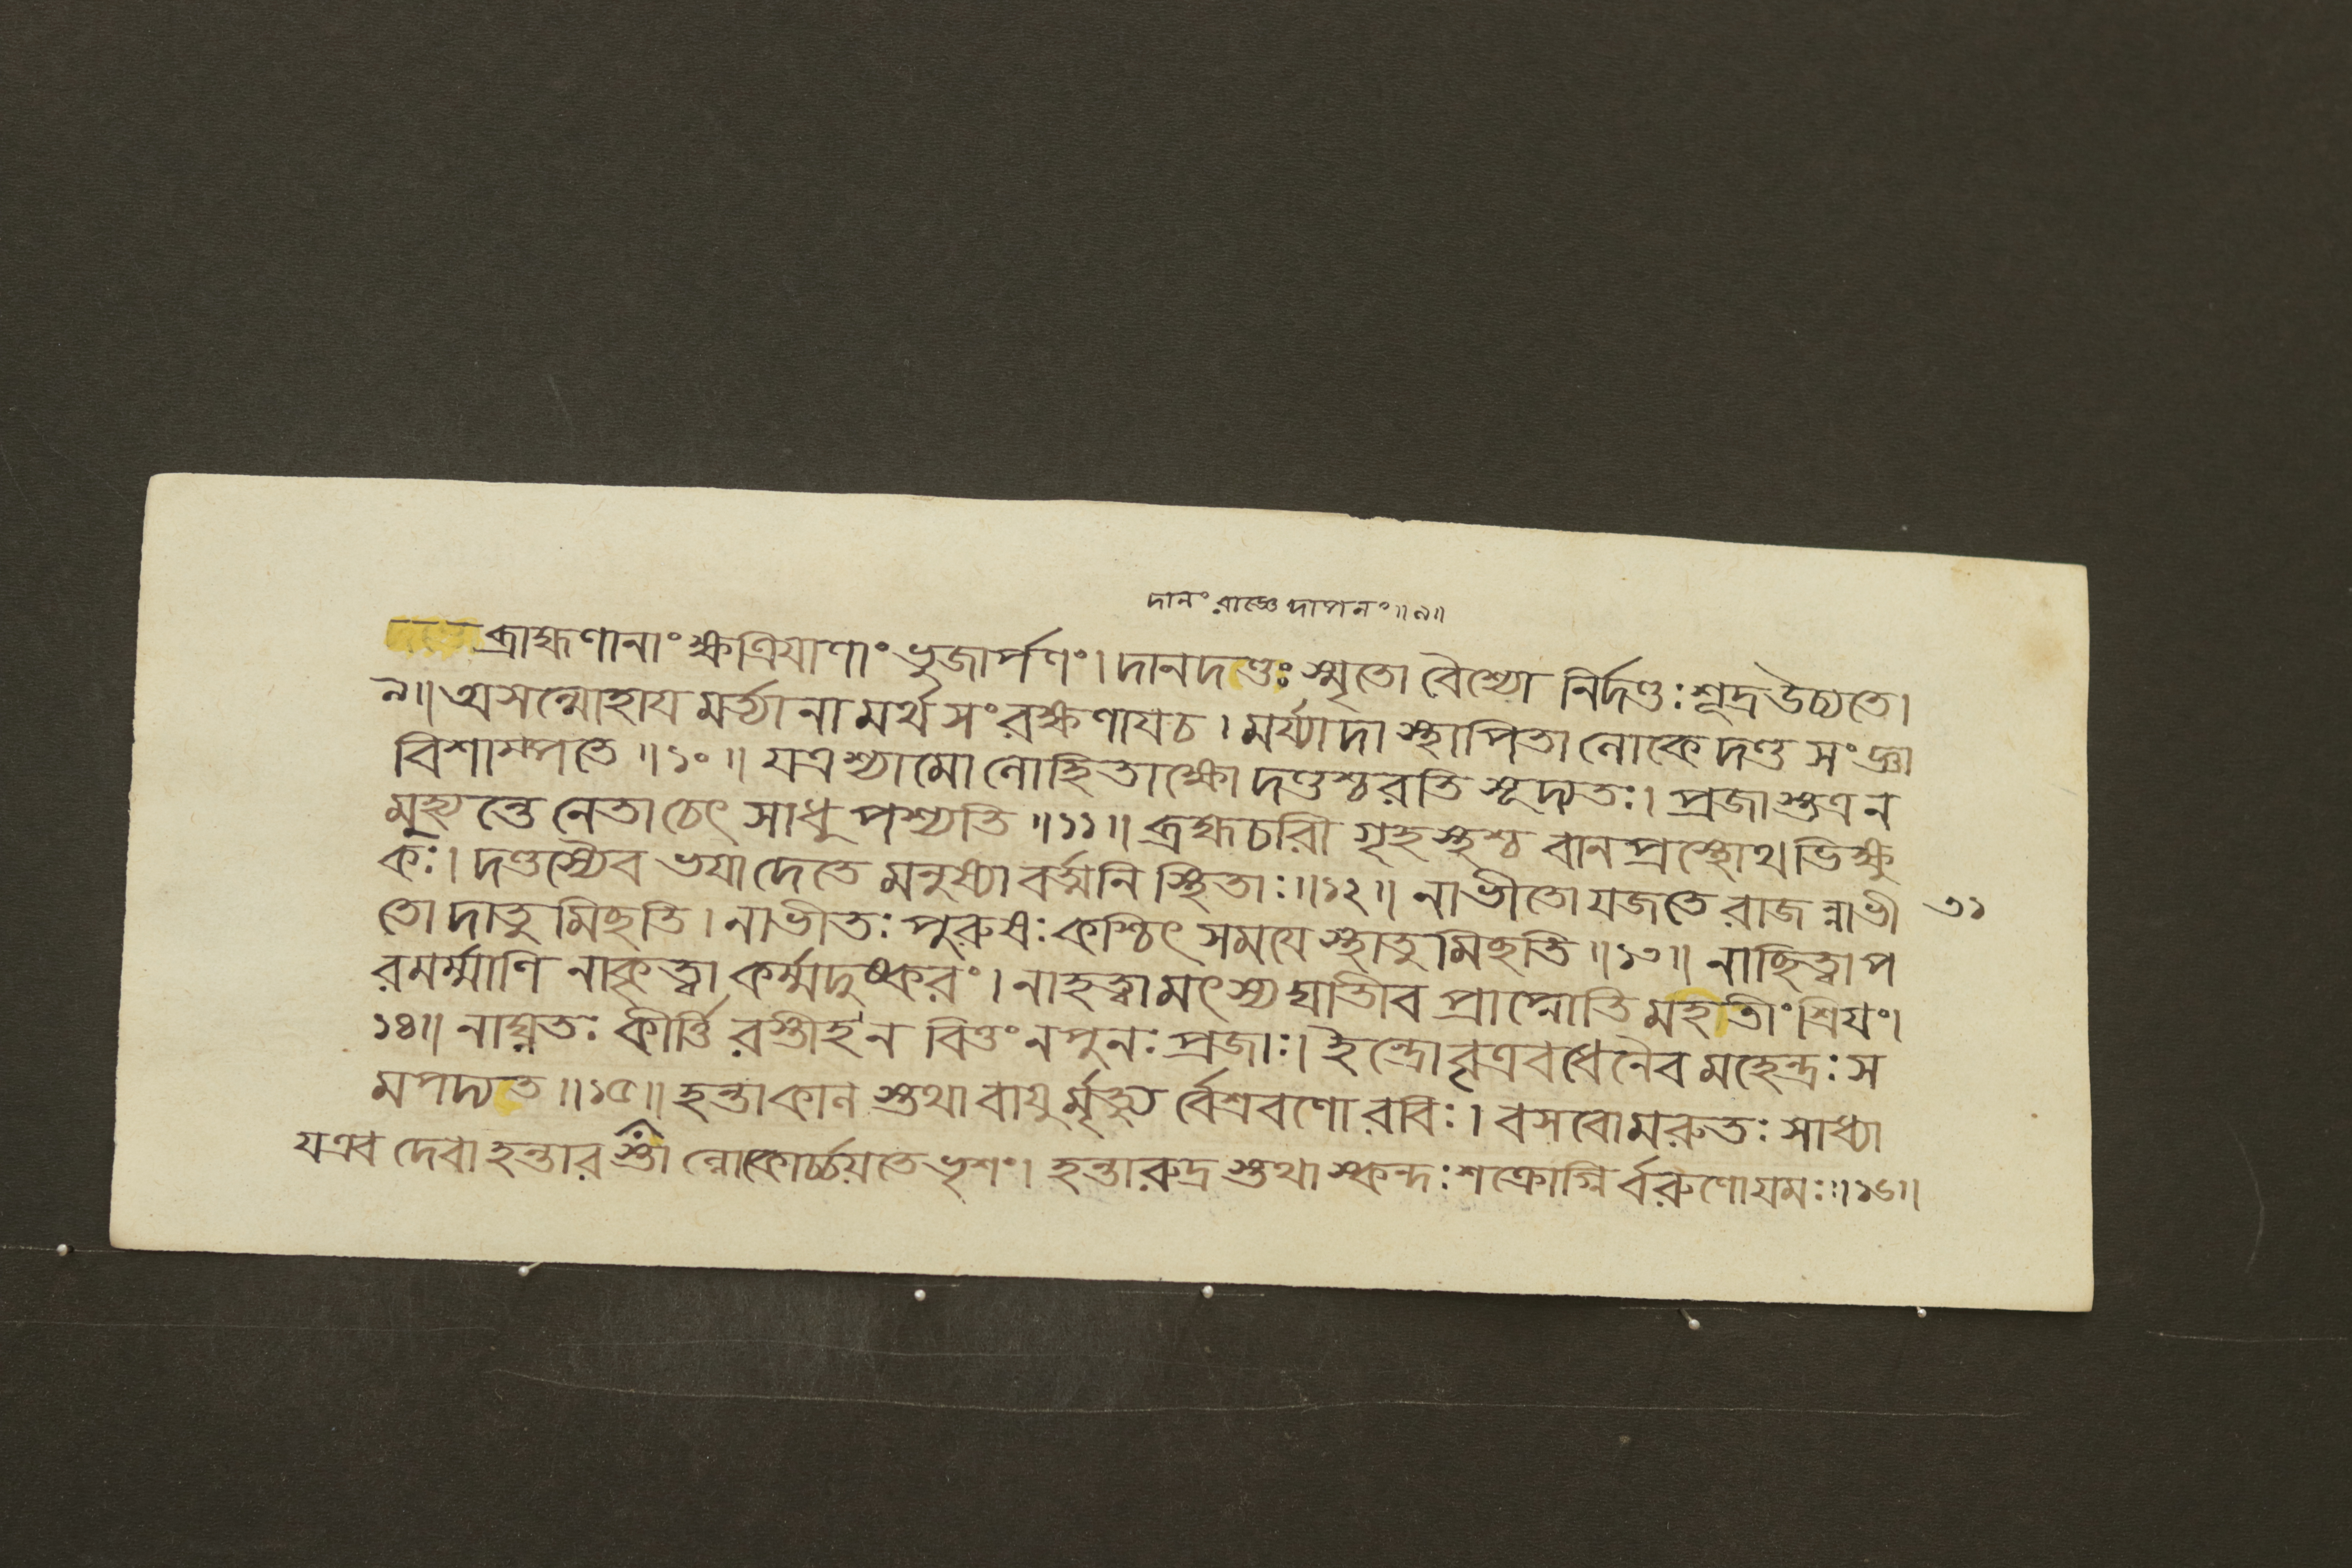 দানং রাজ্ঞে দাপনং॥৯॥
ব্রাহ্মণানাং ক্ষত্রিযাণাং ভুজার্পণং। দানদণ্ডঃ স্মৃতো বৈশ্যো নির্দণ্ডঃ শূদ্র উচ্যতে।
৯॥ অসম্মোহায মর্ত্যানামর্থসংরক্ষণাযচ। মর্য্যাদা স্থাপিতা লোকে দণ্ডসংজ্ঞা
বিশাম্পতে॥১০॥ যত্র শ্যামো লোহিতাক্ষো দণ্ডশ্চরতি সূদ্যতঃ। প্রজাস্তত্র ন
মুহ্যন্তে নেতা চেৎ সাধু পশ্যতি॥১১॥ ব্রহ্মচারী গৃহস্থশ্চ বানপ্রস্থোথ ভিক্ষু
কঃ। দণ্ডস্যৈব ভযাদেতে মনুষ্যা বর্ত্মনি স্থিতাঃ॥১২॥ নাভীতো যজতে রাজন্নাভী ৩১
তো দাতুমিছতি। নাভীতঃ পুরুষঃ কশ্চিৎ সমযে স্থাতুমিছতি॥১৩॥ নাছিত্বা প
রমর্ম্মাণি নাকৃত্বা কর্ম্মদুষ্করং। নাহত্বা মৎস্যঘাতীব প্রাপ্নোতি মহতীং শ্রিযং।
১৪॥ নাঘ্নতঃ কীর্ত্তিরস্তীহ ন বিত্তং ন পুনঃ প্রজাঃ। ইন্দ্রো বৃত্রবধেনৈব মহেন্দ্রঃ স
মপদ্যত॥১৫॥ হন্তা কালস্তথা বাযুর্মৃত্যুর্বৈশ্রবণো রবিঃ। বসবো মরুতঃ সাধ্যা
য এব দেবা হন্তারস্তাঁল্লোকোর্চ্চযতে ভৃশং। হন্তা রুদ্রস্তথা স্কন্দঃ শক্রোগ্নির্বরুণো যমঃ॥১৬॥